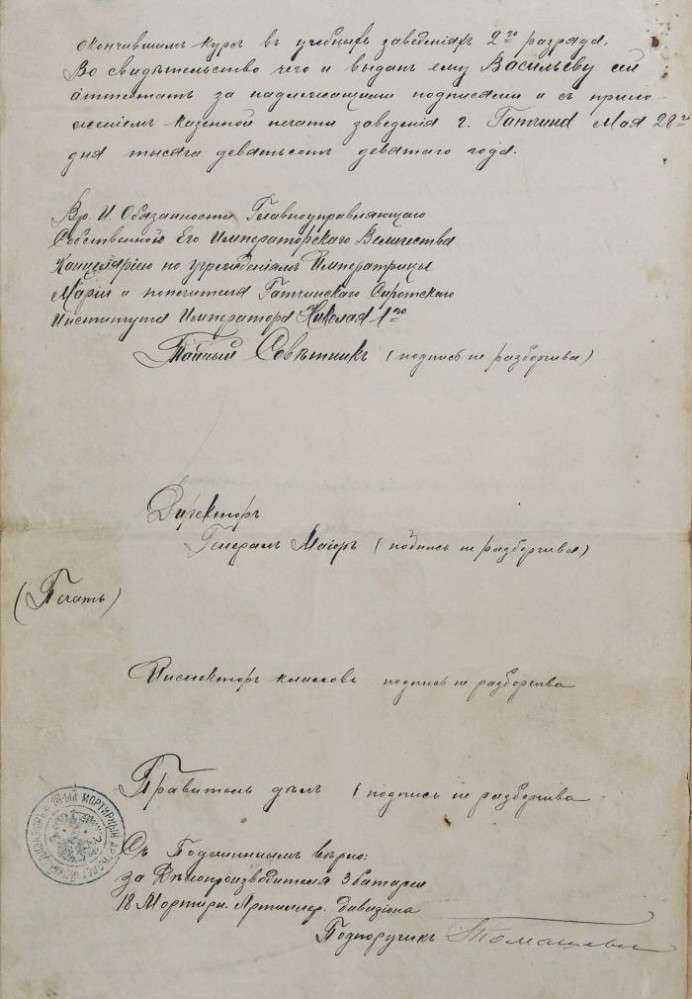 окончившимъ курсъ въ учебныхъ заведеніяхъ 2го разряда.
Во свидѣтельство чего и выданъ ему Васильеву сей
аттестатъ за надлежащими подписями и съ прило
женіемъ казенной печати заведенія г. Гатчина Мая 28го
дня тысяча девятьсотъ девятаго года.
Вр. И. Обязанности Главноуправляющаго
Собственною Его Императорскаго Величества
Канцеляріею по учрежденіямъ Императрицы
Маріи и попечителя Гатчинскаго Сиротскаго
Института Императора Николая 1го
Тайный Совѣтникъ (подпись не разборчива)
Директоръ
Генералъ Маіоръ (подпись не разборчива)
(Печать)
Инспекторъ классовъ подпись не разборчива
Правитель дѣлъ (подпись не разборчива
Съ Подлиннымъ вѣрно:
За Дѣлопроизводителя 3 батареи
18 Мортирн. Артиллер. дивизіона
Подпоручикъ
18-ЫЙ МОРТИРНЫЙ АРТИЛЛЕРІЙСКІЙ ДИВИЗІОНЪ